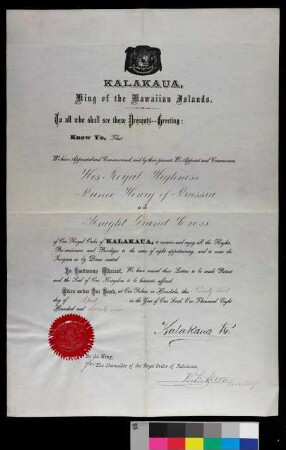 KALAKAUA,
King of the Hawaiian Islands.
To all who shall see these Presents—Greeting:
Know Ye, That
We have Appointed and Commissioned, and by these presents We Appoint and Commission
His Royal Highness
Prince Henry of Prussia
to be
Knight Grand Cross
of Our Royal Order of KALAKAUA, to exercise and enjoy all the Rights,
Pre-eminences and Privileges to the same of right appertaining, and to wear the
Insignia as by Decree created.
In Testimony Whereof, We have caused these Letters to be made Patent
and the Seal of Our Kingdom to be hereunto affixed.
Given under Our Hand, at Our Palace in Honolulu, this
day of April in the Year of Our Lord, One Thousand Eight
Hundred and Seventy nine
Kalakaua R
By the King,
for The Chancellor of the Royal Order of Kalakaua.